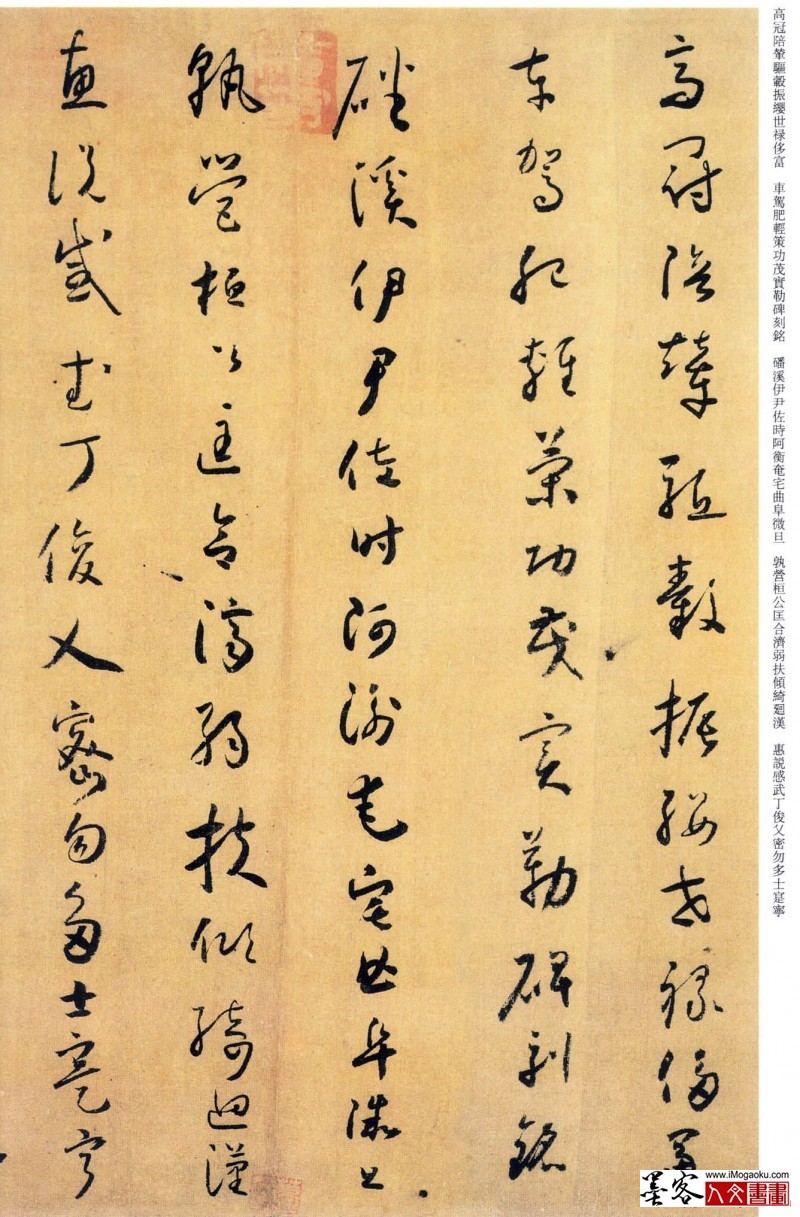 高冠陪輦驅轂振纓世祿侈富
車駕肥輕策功茂實勒碑刻銘
磻溪伊尹佐時阿衡奄宅曲阜微旦
孰營桓公匡合濟弱扶傾綺迴漢
惠說感武丁俊乂密勿多士寔寧
高冠陪輦驅轂振纓世祿侈富 車駕肥輕策功茂實勒碑刻銘 磻溪伊尹佐時阿衡奄宅曲阜微旦 孰營桓公匡合濟弱扶傾綺廻漢 惠説感武丁俊乂密勿多士寔寧
www.iMogaoku.com
墨客 人文書畫